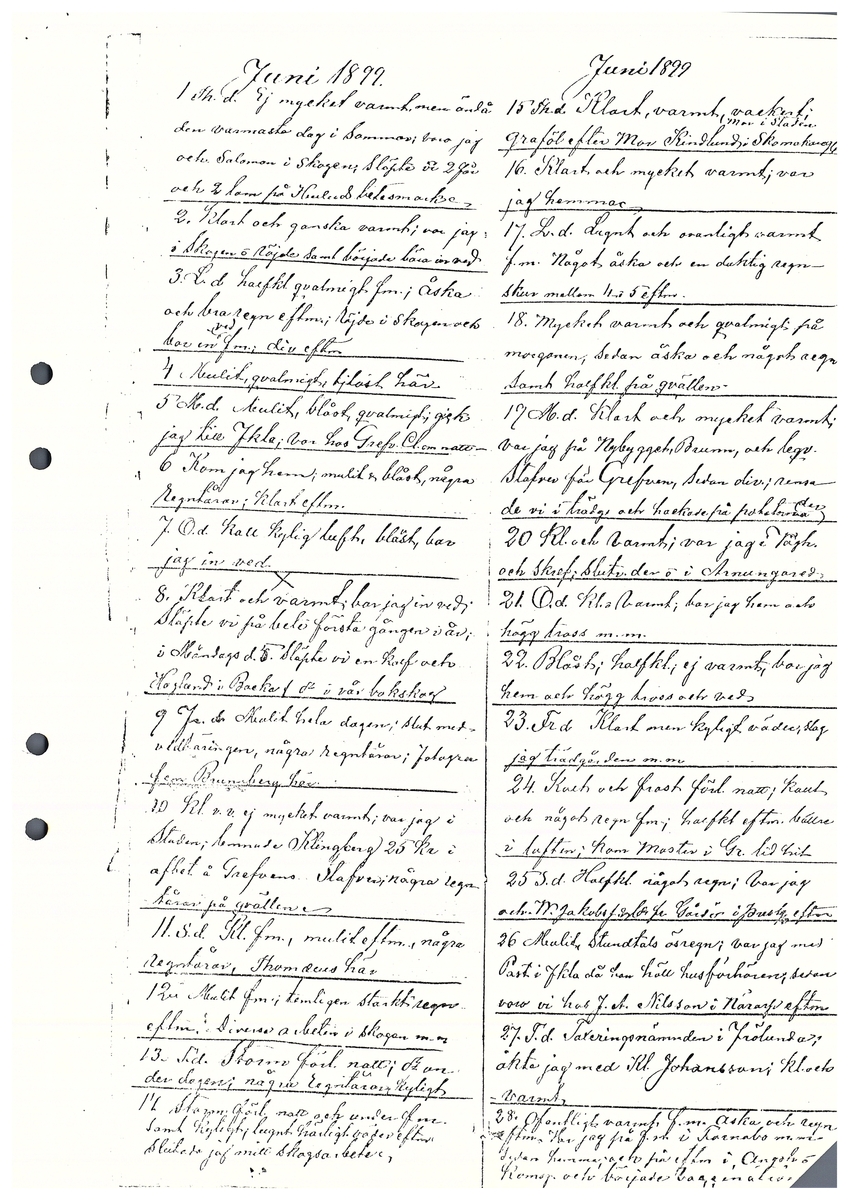 Juni 1899.
1 Th. d. Ej mycket varmt, men ändå
den varmaste dag i Sommar; voro jag
och Salomon i Skogen; Släpte vi 2 Får
och 2 lam på Hulunds betesmark
2. Klart och ganska varmt; var jag
i Skogen o röjde samt började bära in ved
3. L.d. halfkl qvalmigt fm.; åska
och bra regn eftm.; röjde i Skogen och
bar in ved fm.; div eftm
4 Mulit, qvalmigt, här
5 M.d. Mulit, blåst, qvalmigt; gick
jag till Jkla; var hos Grefv. Cl. om natt
6 Kom jag hem; mulit & blåst, några
regntårar; klart eftm.
7. O.d. kall kylig luft, blåst, bar
jag in ved.
8. Klart och varmt; bar jag in ved;
Släpte vi på bete första gången i år;
i Måndags d. 5. Släpte vi en Kalf och
i Backa i vår bokskog
9 Fr. d. Mulit hela dagen; slut med
vedbäringen, några regntårar; Fotogra
fen Brunsberg här
10 Kl. v.v. ej mycket varmt; var jag i
Staden; lemnade Klingberg 25 Kr i
afbet å Grefvens Stafver; några regn
tårar på qvällen
11. S.d. Kl. fm., mulit eftm., några
regntårar, Thomæus här
12. Mulit fm.; temligen starkt regn
eftm. Diverse arbeten i Skogen m.m
13. T.d. Storm förl. natt; do un
der dagen; några regntårar, kyligt
14 Storm förl. natt och under f.m.
samt kyligt; lugnt härligt väder eftm
Slutade jag mitt skogsarbete
Juni 1899
15 Th.d Klart, varmt, vackert;
Mor i Staden
graföl efter Mor Kindlund i Skomakare
16. Klart och mycket varmt; var
jag hemma
17. L.d. Lugnt och ovanligt varmt
f.m. Något åska och en duktig regn
skur mellem 4 å 5 eftm.
18. Mycket varmt och qvalmigt på
morgonen, Sedan åska och något regn
samt halfkl. på qvällen
19 M.d. Klart och mycket varmt;
var jag på Nybygget, Brunn, och
Stafver för Grefven, Sedan div.; rensa
de vi i trädg. och hackade på potatoes
20 Kl. och Varmt; var jag i
och Skref; Slutv. der o i Arnungared
21. O.d. Kl. o Varmt; bar jag hem och
högg tross m.m.
22. Blåst; halfkl.; ej varmt, bar jag
hem och högg tross och ved
23. Frd Klart men kyligt väder; slog
jag trädgården m.m
24. Kallt och frost förl. natt; Kallt
och något regn fm.; halfkl eftm. bättre
i luften; kom Moster i Gr. hit
25 S.d. Halfkl. något regn; Var jag
och W. Jakobs eftm
26 Mulit, Stundtals ösregn; var jag med
Past i Jkla då han höll husförhören, sedan
voro vi hos J.A. Nilsson i eftm
27. T.d. Taxeringsnämnden i Frölunda;
åkte jag med Kl. Johansson; kl. och
varmt
28. Ofentligt varmt f.m. åska och regn
eftm. Var jag på f.m. i Kornabo m.m.
Sedan hemma; och på eftm i
Komsp. och började